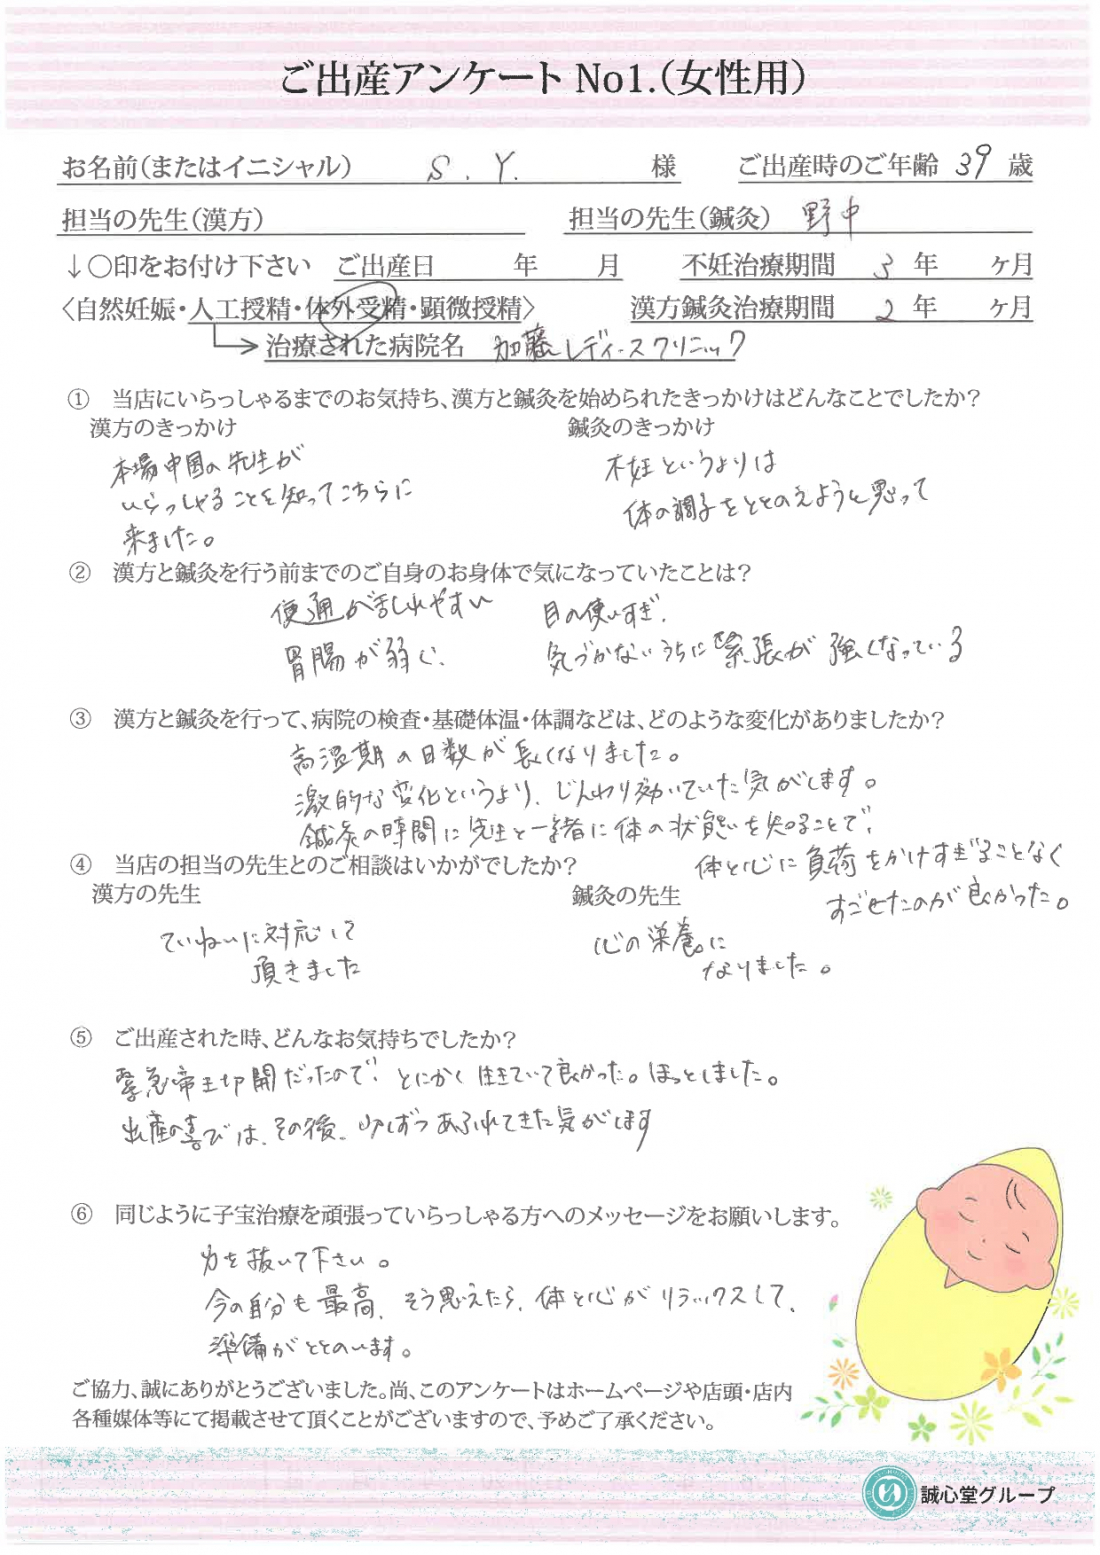 ご出産アンケート No1.(女性用)
お名前(またはイニシャル) S.Y. 様 ご出産時のご年齢 39 歳
担当の先生(漢方) 担当の先生(鍼灸) 野中
↓○印をお付け下さい ご出産日 年 月 不妊治療期間 3 年 ヶ月
〈自然妊娠・人工授精・体外受精・顕微授精〉 漢方鍼灸治療期間 2 年 ヶ月
治療された病院名 加藤レディースクリニック
① 当店にいらっしゃるまでのお気持ち、漢方と鍼灸を始められたきっかけはどんなことでしたか?
漢方のきっかけ
本場中国の先生が
いらっしゃることを知ってこちらに
来ました。
鍼灸のきっかけ
不妊というよりは
体の調子をととのえようと思って
② 漢方と鍼灸を行う前までのご自身のお身体で気になっていたことは?
便通が乱れやすい 目の使いすぎ、
胃腸が弱く、 気づかないうちに緊張が強くなっている
③ 漢方と鍼灸を行って、病院の検査・基礎体温・体調などは、どのような変化がありましたか?
高温期の日数が長くなりました。
激的な変化というより、じんわり効いていた気がします。
鍼灸の時間に先生と一緒に体の状態を知ることで、
体と心に負荷をかけすぎることなく
すごせたのが良かった。
④ 当店の担当の先生とのご相談はいかがでしたか?
漢方の先生
ていねいに対応して
頂きました
鍼灸の先生
心の栄養に
なりました。
⑤ ご出産された時、どんなお気持ちでしたか?
緊急帝王切開だったので、とにかく生きていて良かった。ほっとしました。
出産の喜びは、その後、少しずつあふれてきた気がします
⑥ 同じように子宝治療を頑張っていらっしゃる方へのメッセージをお願いします。
力を抜いて下さい。
今の自分も最高、そう思えたら、体と心がリラックスして、
準備がととのいます。
ご協力、誠にありがとうございました。尚、このアンケートはホームページや店頭・店内
各種媒体等にて掲載させて頂くことがございますので、予めご了承ください。
誠心堂グループ